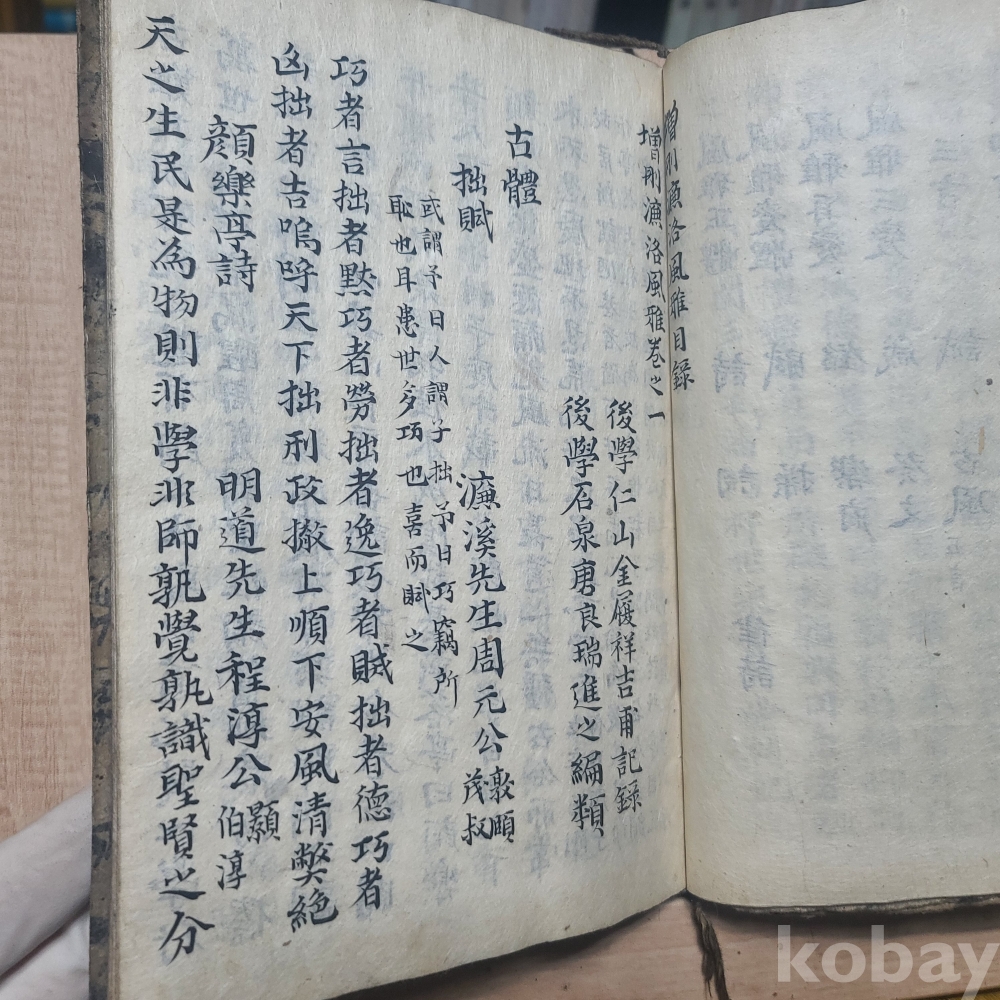 增刪濂洛風雅目錄
增刪濂洛風雅卷之一
後學仁山金履祥吉甫記錄
後學石泉唐良瑞進之編類
古體
拙賦
濂溪先生周元公敦頤茂叔
或謂予曰人謂子拙予曰巧竊所
恥也耳患世多巧也喜而賦之
巧者言拙者默巧者勞拙者逸巧者賊拙者德巧者
凶拙者吉嗚呼天下拙刑政撤上順下安風清弊絕
顏樂亭詩
明道先生程淳公顥伯淳
天之生民是為物則非學非師孰覺孰識聖賢之分
kobay